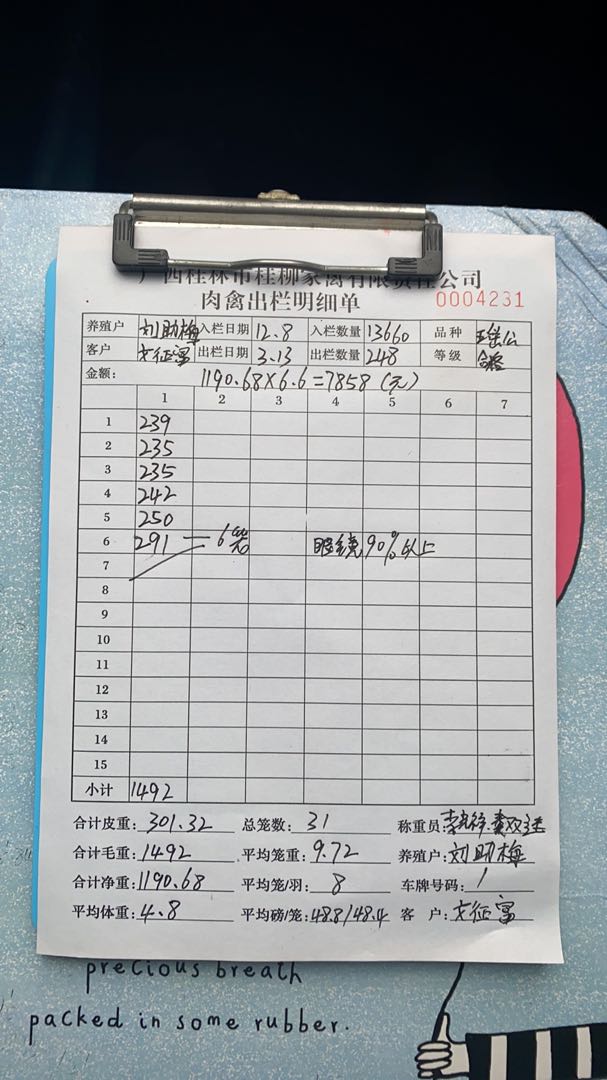 广西桂林市桂柳家禽有限责任公司
肉禽出栏明细单 0004231
养殖户 刘助梅 入栏日期 12.8 入栏数量 13660 品种
客户 文征富 出栏日期 3.13 出栏数量 248 等级 合格
金额: 1190.68×6.6=7858(元)
1 2 3 4 5 6 7
1 239
2 235
3 235
4 242
5 250
6 291 — 6笼 90%以上
7
8
9
10
11
12
13
14
15
小计 1492
合计皮重: 301.32 总笼数: 31 称重员:
合计毛重: 1492 平均笼重: 9.72 养殖户: 刘助梅
合计净重: 1190.68 平均笼/羽: 8 车牌号码: /
平均体重: 4.8 平均磅/笼: 48.8/48.4 客户: 文征富
precious breath
packed in some rubber.